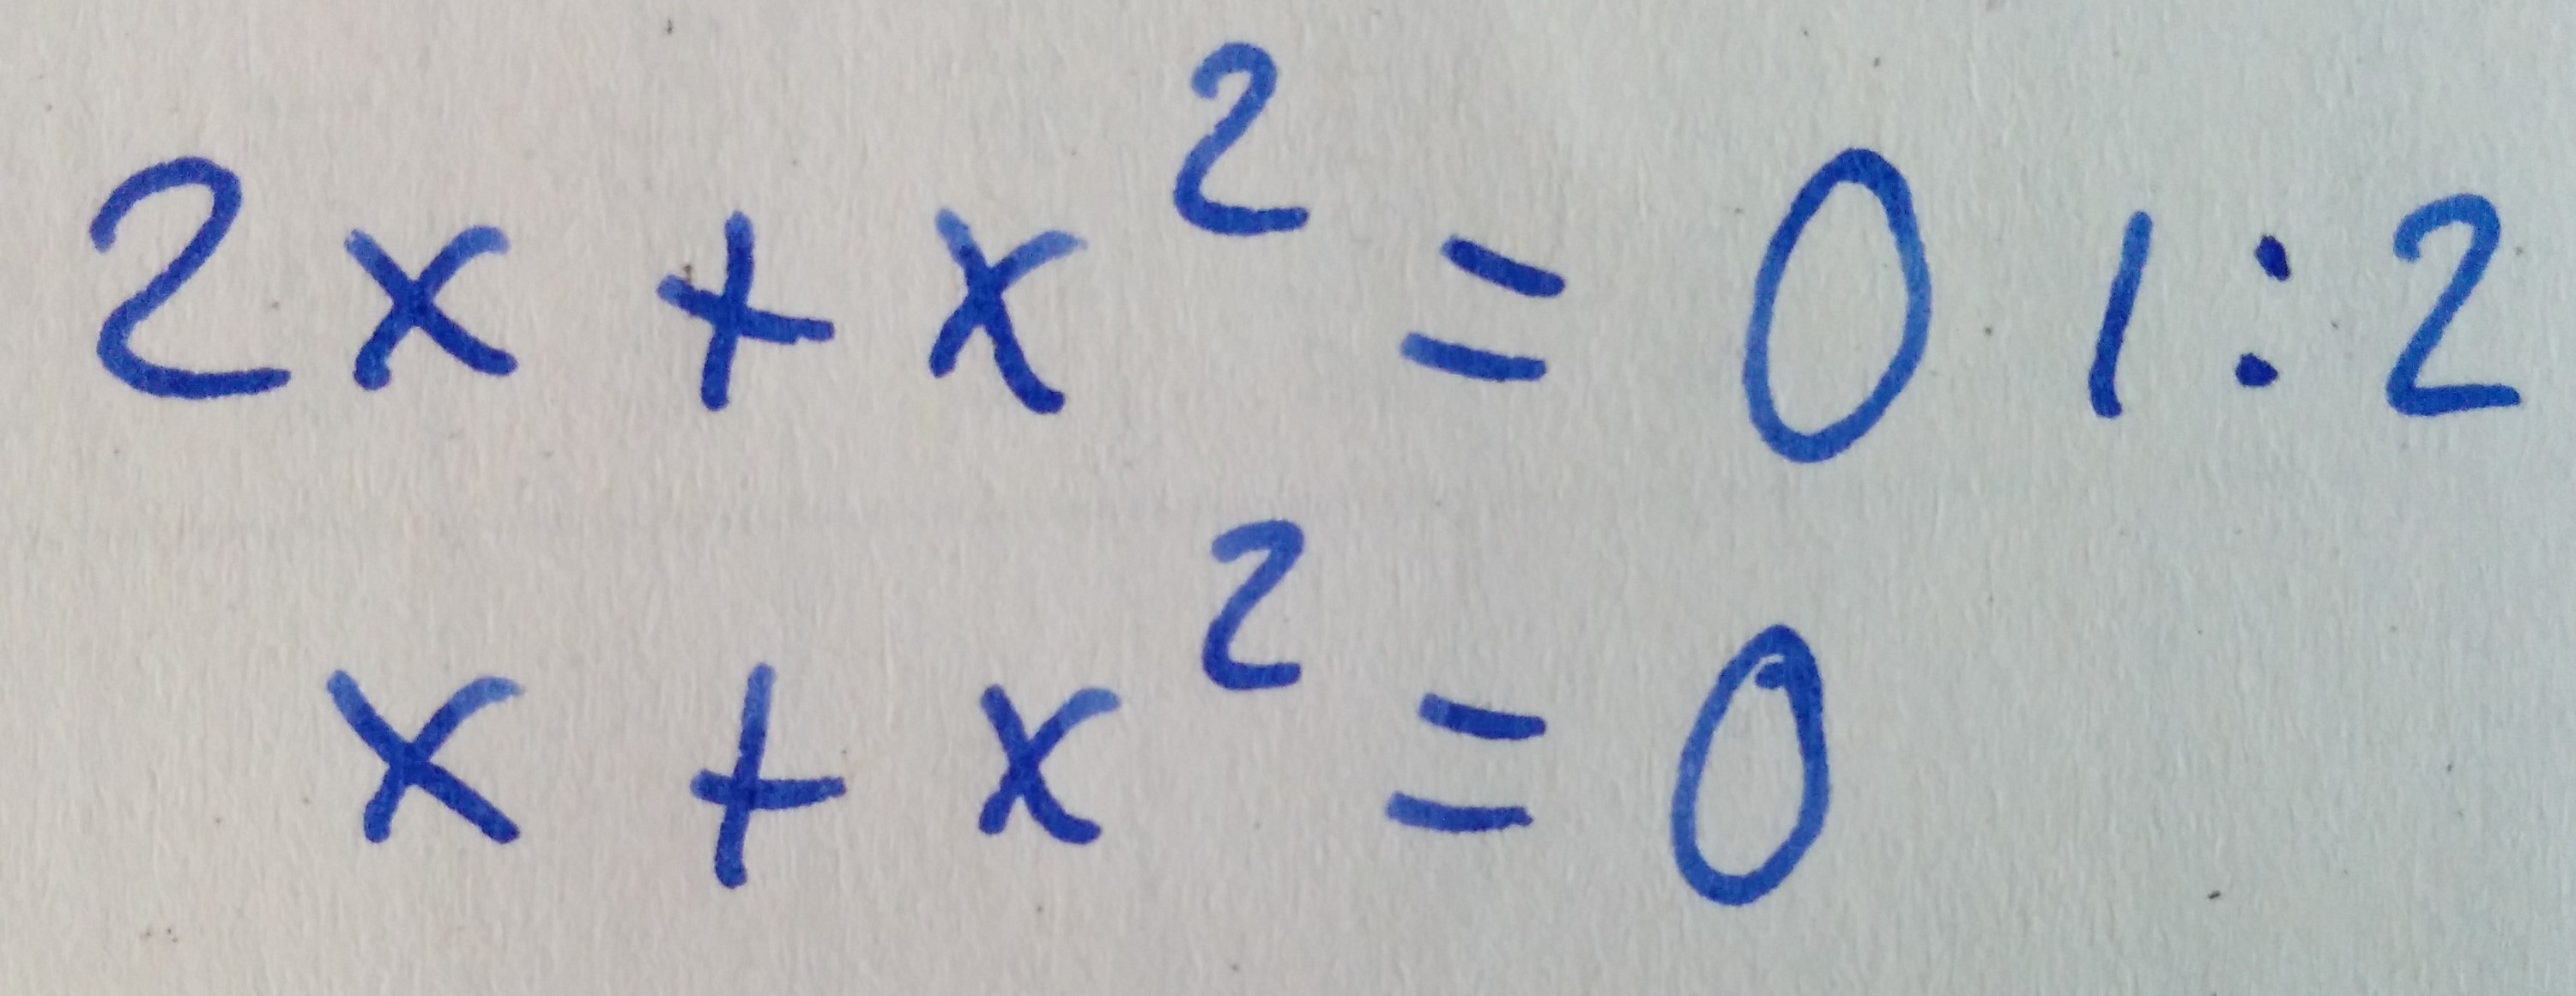 2x + x² = 0 | : 2
x + x² = 0